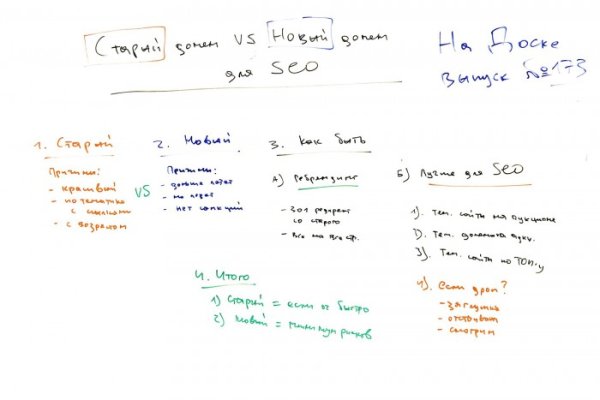 Старый домен VS Новый домен
для SEO
На Доске
выпуск №173
1. Старый
Причины:
- красивый
- по тематике
с ссылками
- с возрастом
VS
2. Новый
Причины:
- дольше
- нет санкций
3. Как быть
А) Ребрендинг
- 301 редирект
со старого
- все на все стр.
Б) Лучше для SEO
1). Тем. сайты на аукционе
2). Тем. домены аукц.
3). Тем. сайты по ТОП-у
4). если дроп?
- заглушка
- отстаиваем
- смотрим
4. Итого
1) Старый = если ок быстро
2) Новый = минимум рисков